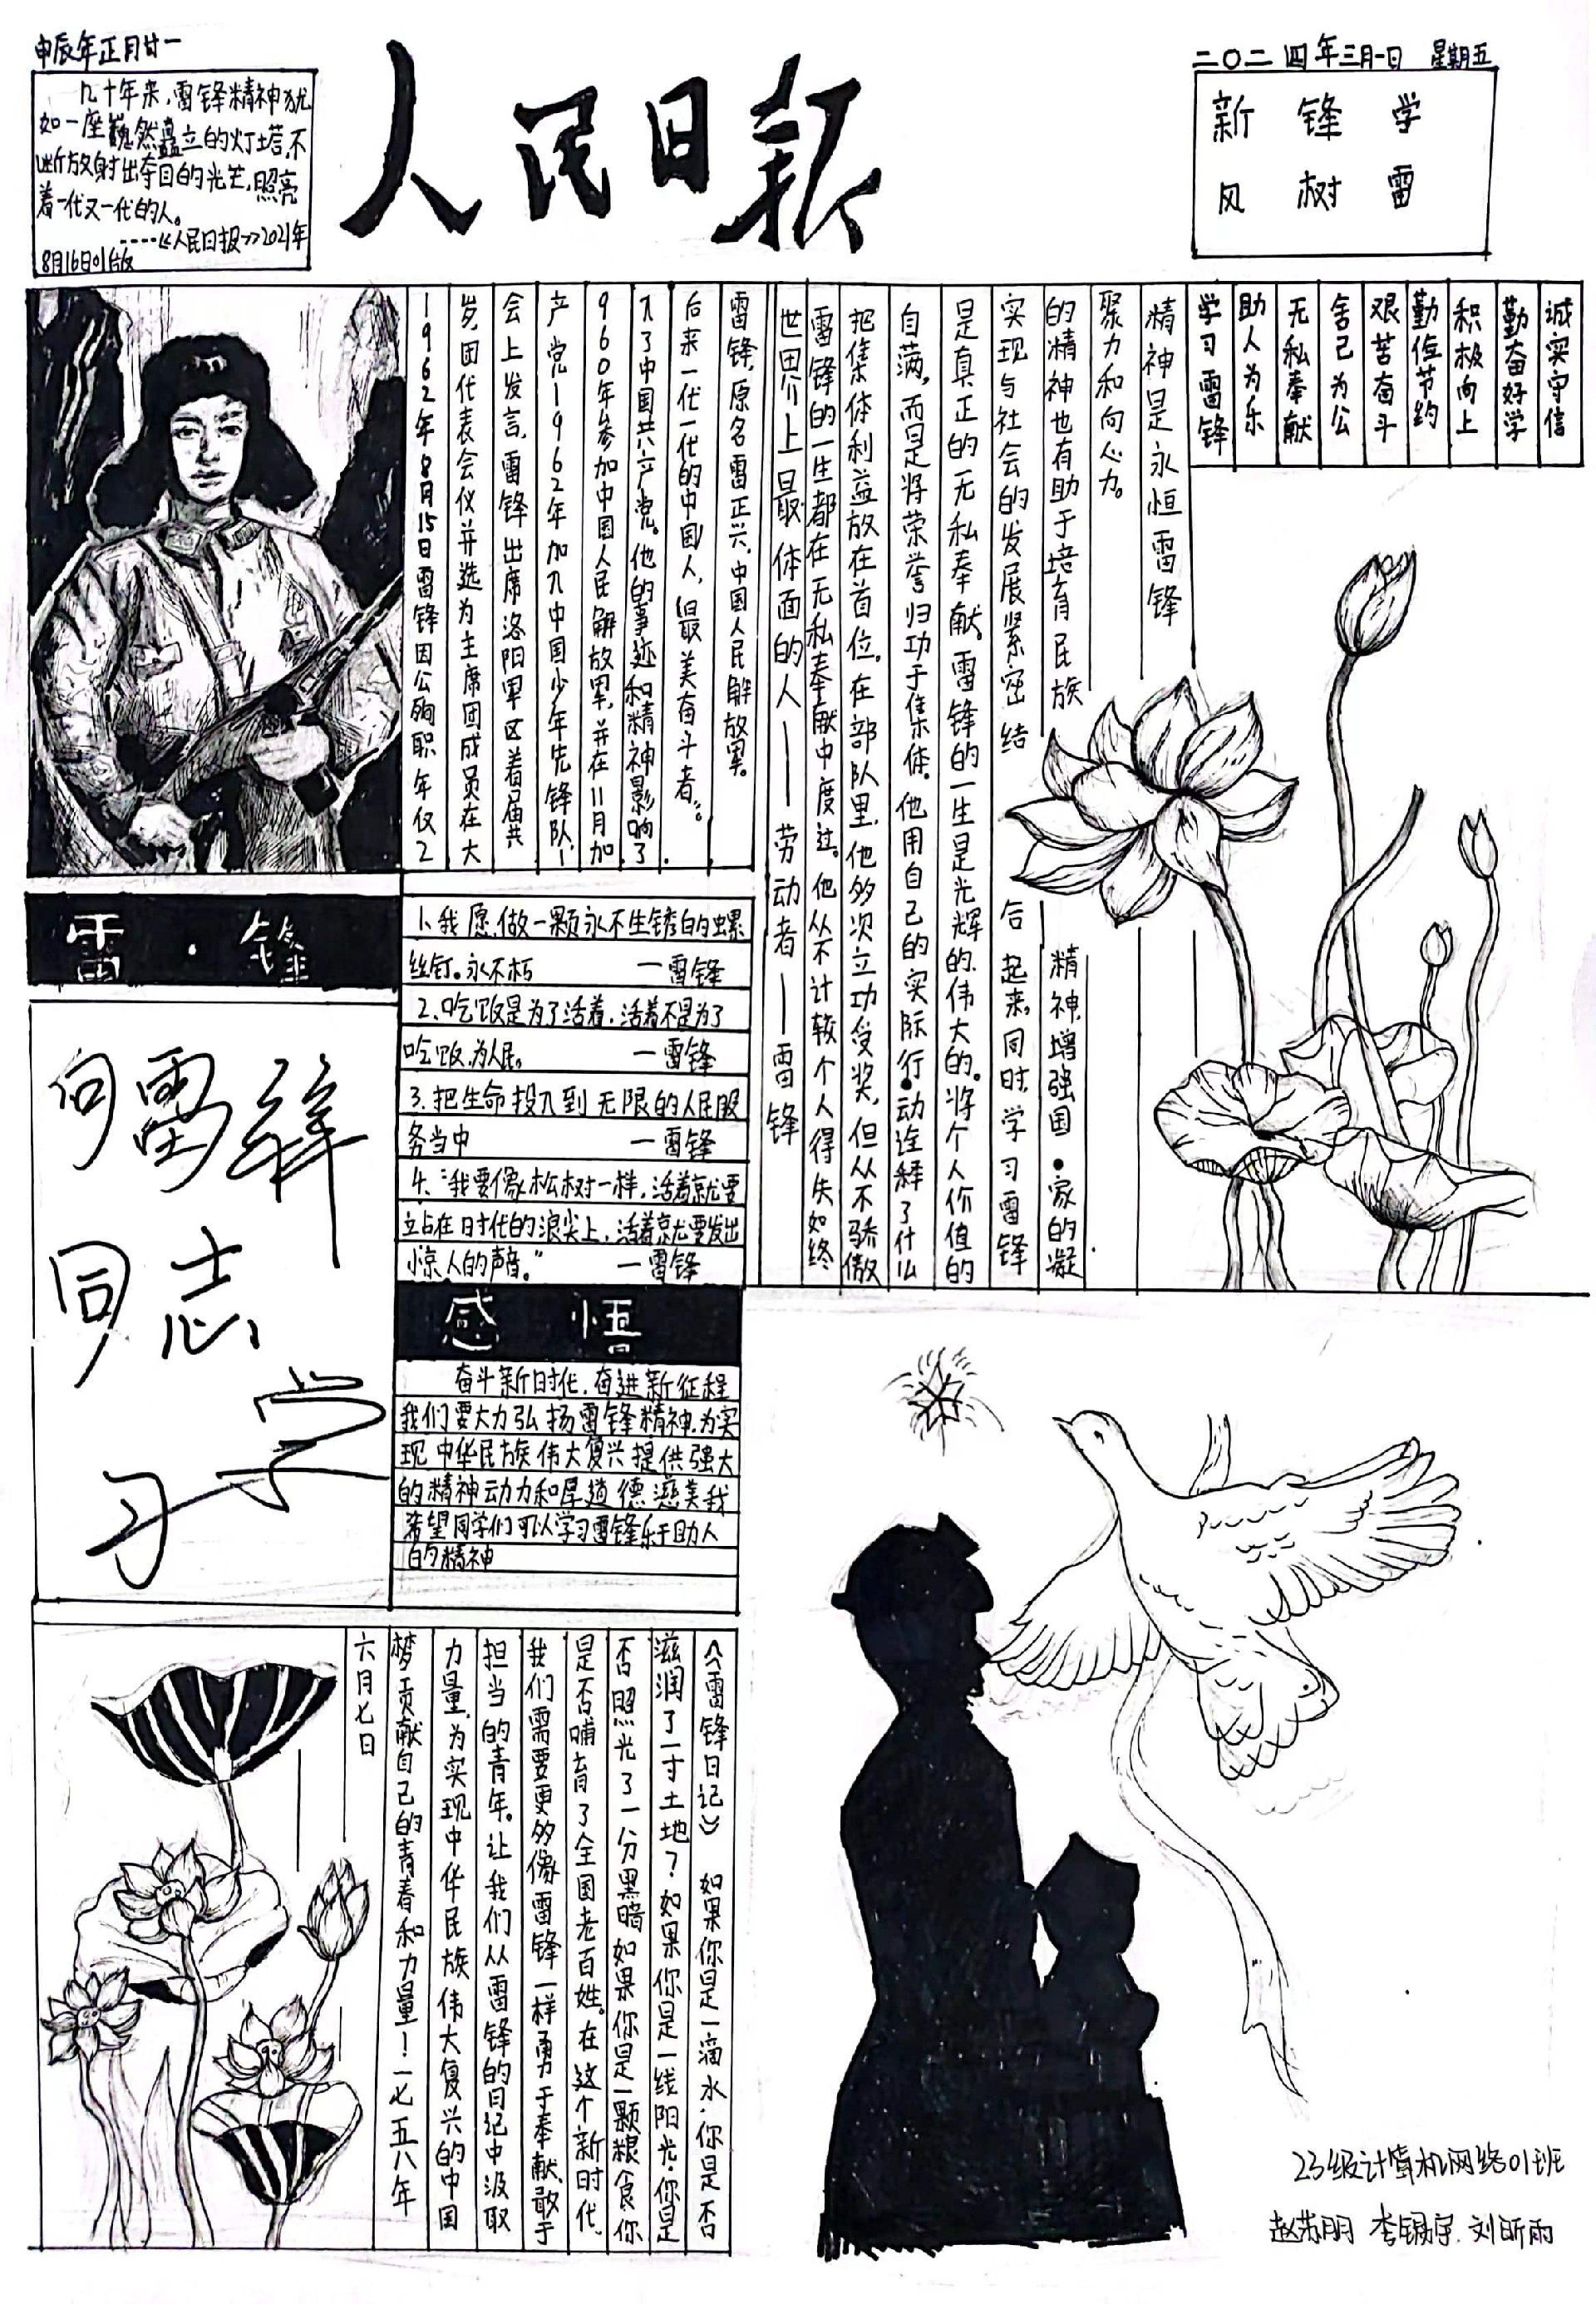 申辰年正月廿一
几十年来，雷锋精神犹
如一座巍然矗立的灯塔，不
断放射出夺目的光芒，照亮
着一代又一代的人。
----《人民日报》2021年
8月16日01版
人民日报
二〇二四年三月一日 星期五
新 锋 学
风 树 雷
诚实守信
勤奋好学
积极向上
勤俭节约
艰苦奋斗
舍己为公
无私奉献
助人为乐
学习雷锋
精神是永恒雷锋
聚力和向心力。
的精神也有助于培育民族
精神，增强国·家的凝
实现与社会的发展紧密结
合起来，同时，学习雷锋
是真正的无私奉献。雷锋的一生是光辉的，伟大的。将个人价值的
自满，而是将荣誉归功于集体，他用自己的实际行·动诠释了什么
把集体利益放在首位。在部队里，他多次立功受奖，但从不骄傲
雷锋的一生都在无私奉献中度过。他从不计较个人得失如终
世界上最体面的人——劳动者——雷锋
雷锋，原名雷正兴，中国人民解放军。
后来一代一代的中国人，最美奋斗者。
入了中国共产党。他的事迹和精神影响了
960年参加中国人民解放军，并在11月加
产党1962年加入中国少年先锋队，1
会上发言，雷锋出席洛阳军区首届共
岁，团代表会仪并选为主席团成员在大
1962年8月15日雷锋因公殉职年仅2
雷·锋
1、我愿做一颗永不生锈的螺
丝钉。永不朽 —雷锋
2、吃饭是为了活着，活着不是为了
吃饭，为人民。 —雷锋
3、把生命投入到无限的人民服
务当中 —雷锋
4、“我要像松树一样，活着就要
立占在时代的浪尖上，活着就要发出
惊人的声音。” —雷锋
向雷锋
同志
学
习
感 悟
奋斗新时代，奋进新征程
我们要大力弘扬雷锋精神，为实
现中华民族伟大复兴提供强大
的精神动力和厚道德
希望同学们可以学习雷锋乐于助人
的精神
《雷锋日记》 如果你是一滴水，你是否
滋润了一寸土地？如果你是一线阳光，你是
否照光了一分黑暗如果你是一颗粮食你
是否哺育了全国老百姓。在这个新时代，
我们需要更多像雷锋一样勇于奉献，敢于
担当的青年。让我们从雷锋的日记中汲取
力量，为实现中华民族伟大复兴的中国
梦贡献自己的青春和力量！一七五八年
六月七日
23级计算机网络01班
赵苏朋 李锡宇 刘昕雨